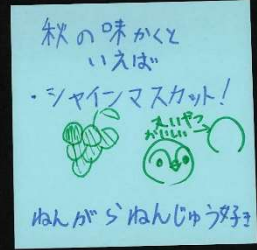 秋の味かくと
いえば
・シャインマスカット!
えいやつ
かいしい
ねんがらねんじゅう好き